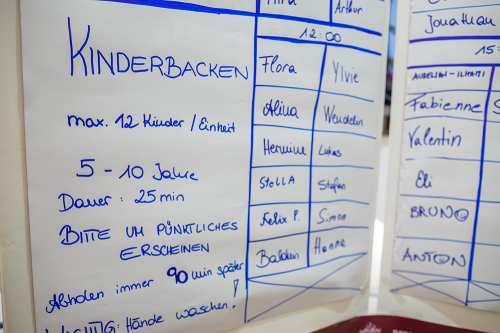 KINDERBACKEN
max. 12 Kinder / Einheit
5 - 10 Jahre
Dauer : 25 min
BITTE UM PÜNKTLICHES
ERSCHEINEN
Abholen immer 90 min später
: Hände waschen!
Arthur
12:00
Flora Ylvie
Alina Wendelin
Hermine Lukas
STELLA Stefan
Felix P. Simon
Balduin Hanna
Jonathan
15:
AURELIAN-ILHAMI
Fabienne
Valentin
Eli
BRUNO
ANTON